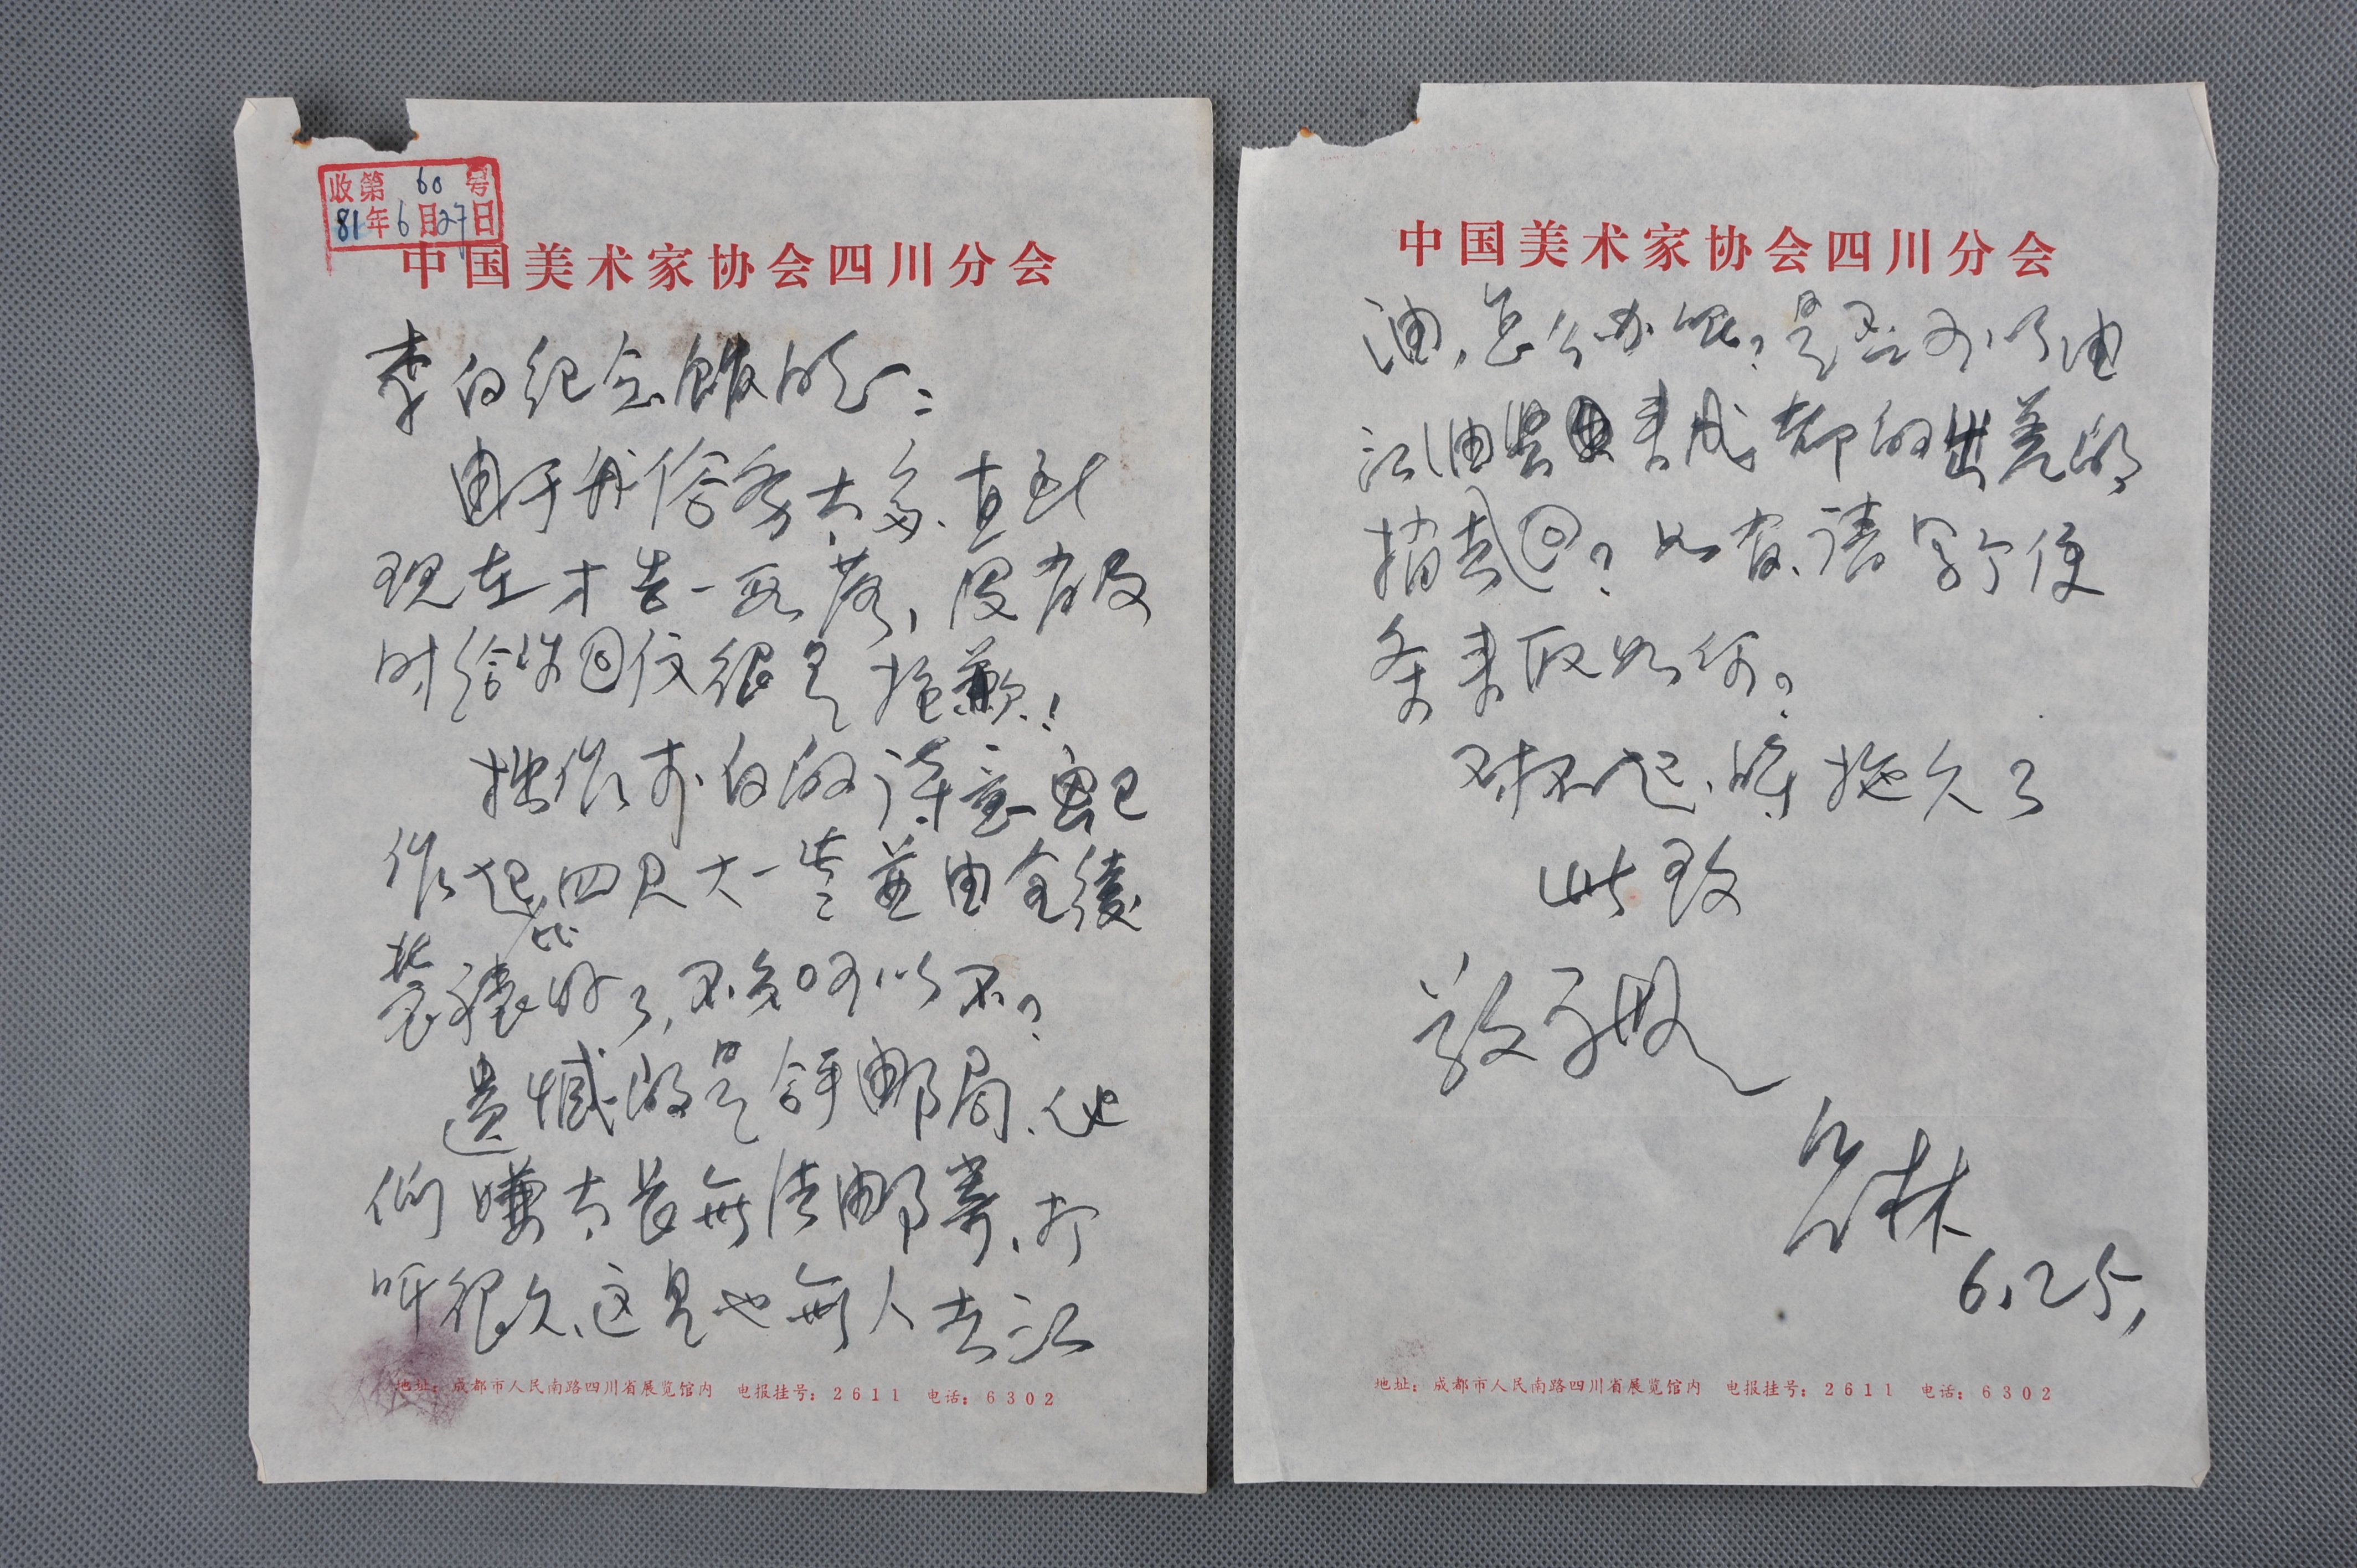 收第60号
81年6月27日
中国美术家协会四川分会
李白纪念馆的同志:
由于我俗务太多、直到
现在才告一段落,没有及
时给你回信很是抱歉!
拙作李白的诗意画已
作起四尺大一些并由全绫
装裱好了,不知可以不?
遗憾的是给平邮局、他
们嫌太长无法邮寄、打
听很久、这里也无人去江
地址:成都市人民南路四川省展览馆内 电报挂号:2611 电话:6302
中国美术家协会四川分会
油,怎么办呢?是否可以由
江油县来成都的出差的
捎去回?如有、请写个便
条来取如何?
对不起、时拖久了
此致
敬礼
林
6.25,
地址:成都市人民南路四川省展览馆内 电报挂号:2611 电话:6302